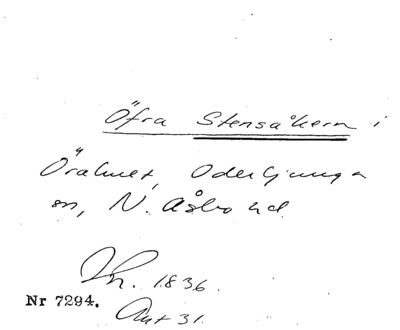 Öfra Stensåkern i
Örahult, Oderljunga
sn, N. Åsbo hd.
Sk. 1836.
Nr 7294.
Akt 31.